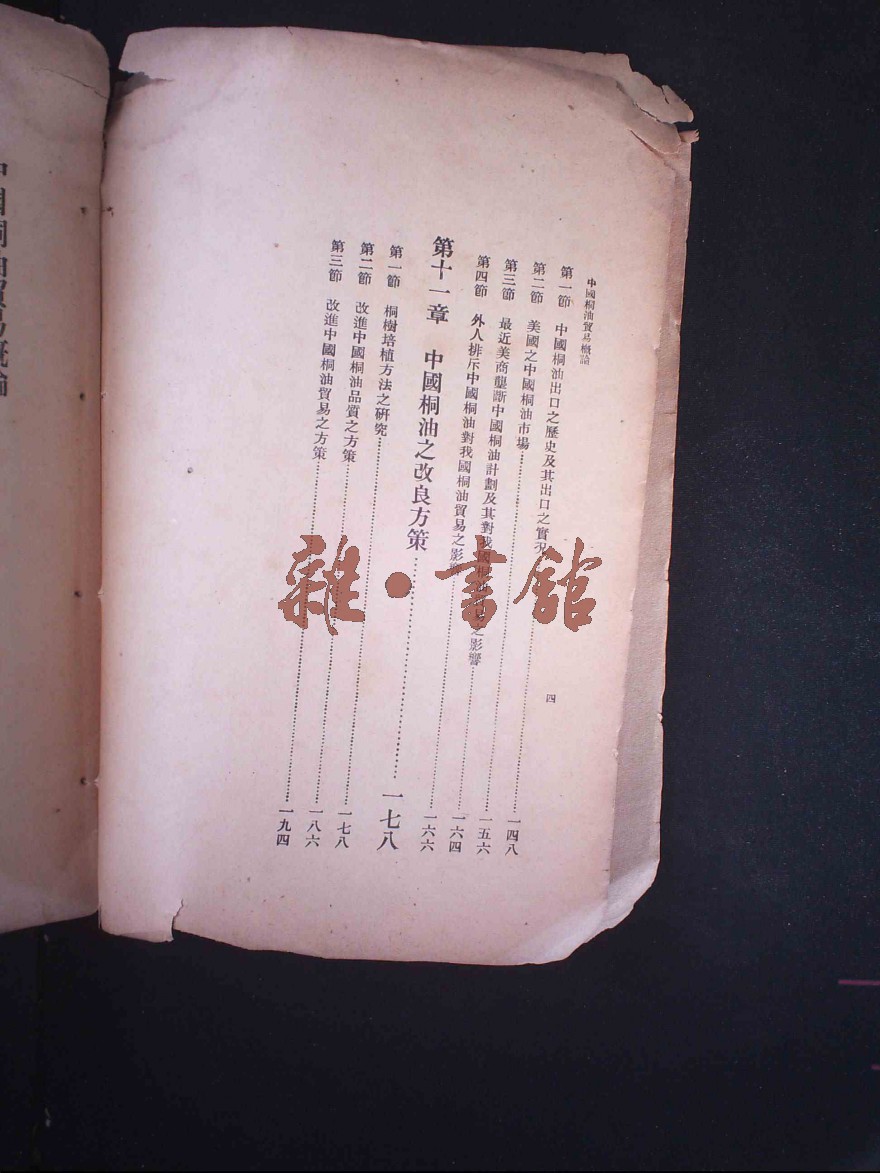 中國桐油貿易概論
第一節　中國桐油出口之歷史及其出口之實況……一四八
第二節　美國之中國桐油市場……一五六
第三節　最近美商壟斷中國桐油計劃及其對我國桐油貿易之影響……一六四
第四節　外人排斥中國桐油對我國桐油貿易之影響……一六六
第十一章　中國桐油之改良方策……一七八
第一節　桐樹培植方法之研究……一七八
第二節　改進中國桐油品質之方策……一八六
第三節　改進中國桐油貿易之方策……一九四
四
雜·書館
中國桐油貿易概論